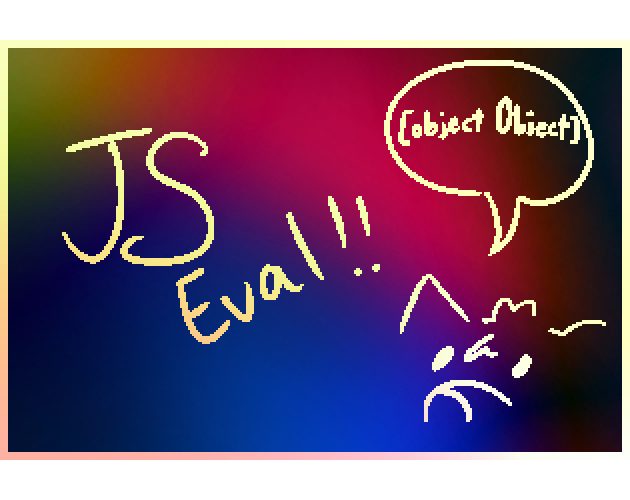 JS
Eval!!
[object Object]